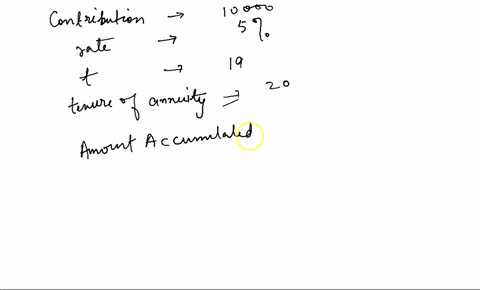 Contribution → 10000
rate → 5%
t → 19
tenure of annuity → 20
Amount Accumulated